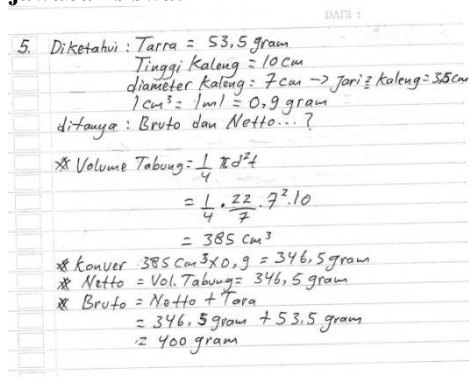 DATE :
5. Diketahui : Tarra = 53,5 gram
Tinggi Kaleng = 10 cm
diameter Kaleng = 7 cm → Jari² Kaleng = 3,5 cm
1 cm³ = 1 ml = 0,9 gram
ditanya : Bruto dan Netto... ?
* Volume Tabung = 1/4 πd²t
= 1/4 . 22/7 . 7² . 10
= 385 cm³
* Konver 385 cm³ x 0,9 = 346,5 gram
* Netto = Vol. Tabung = 346,5 gram
* Bruto = Netto + Tara
= 346,5 gram + 53,5 gram
= 400 gram